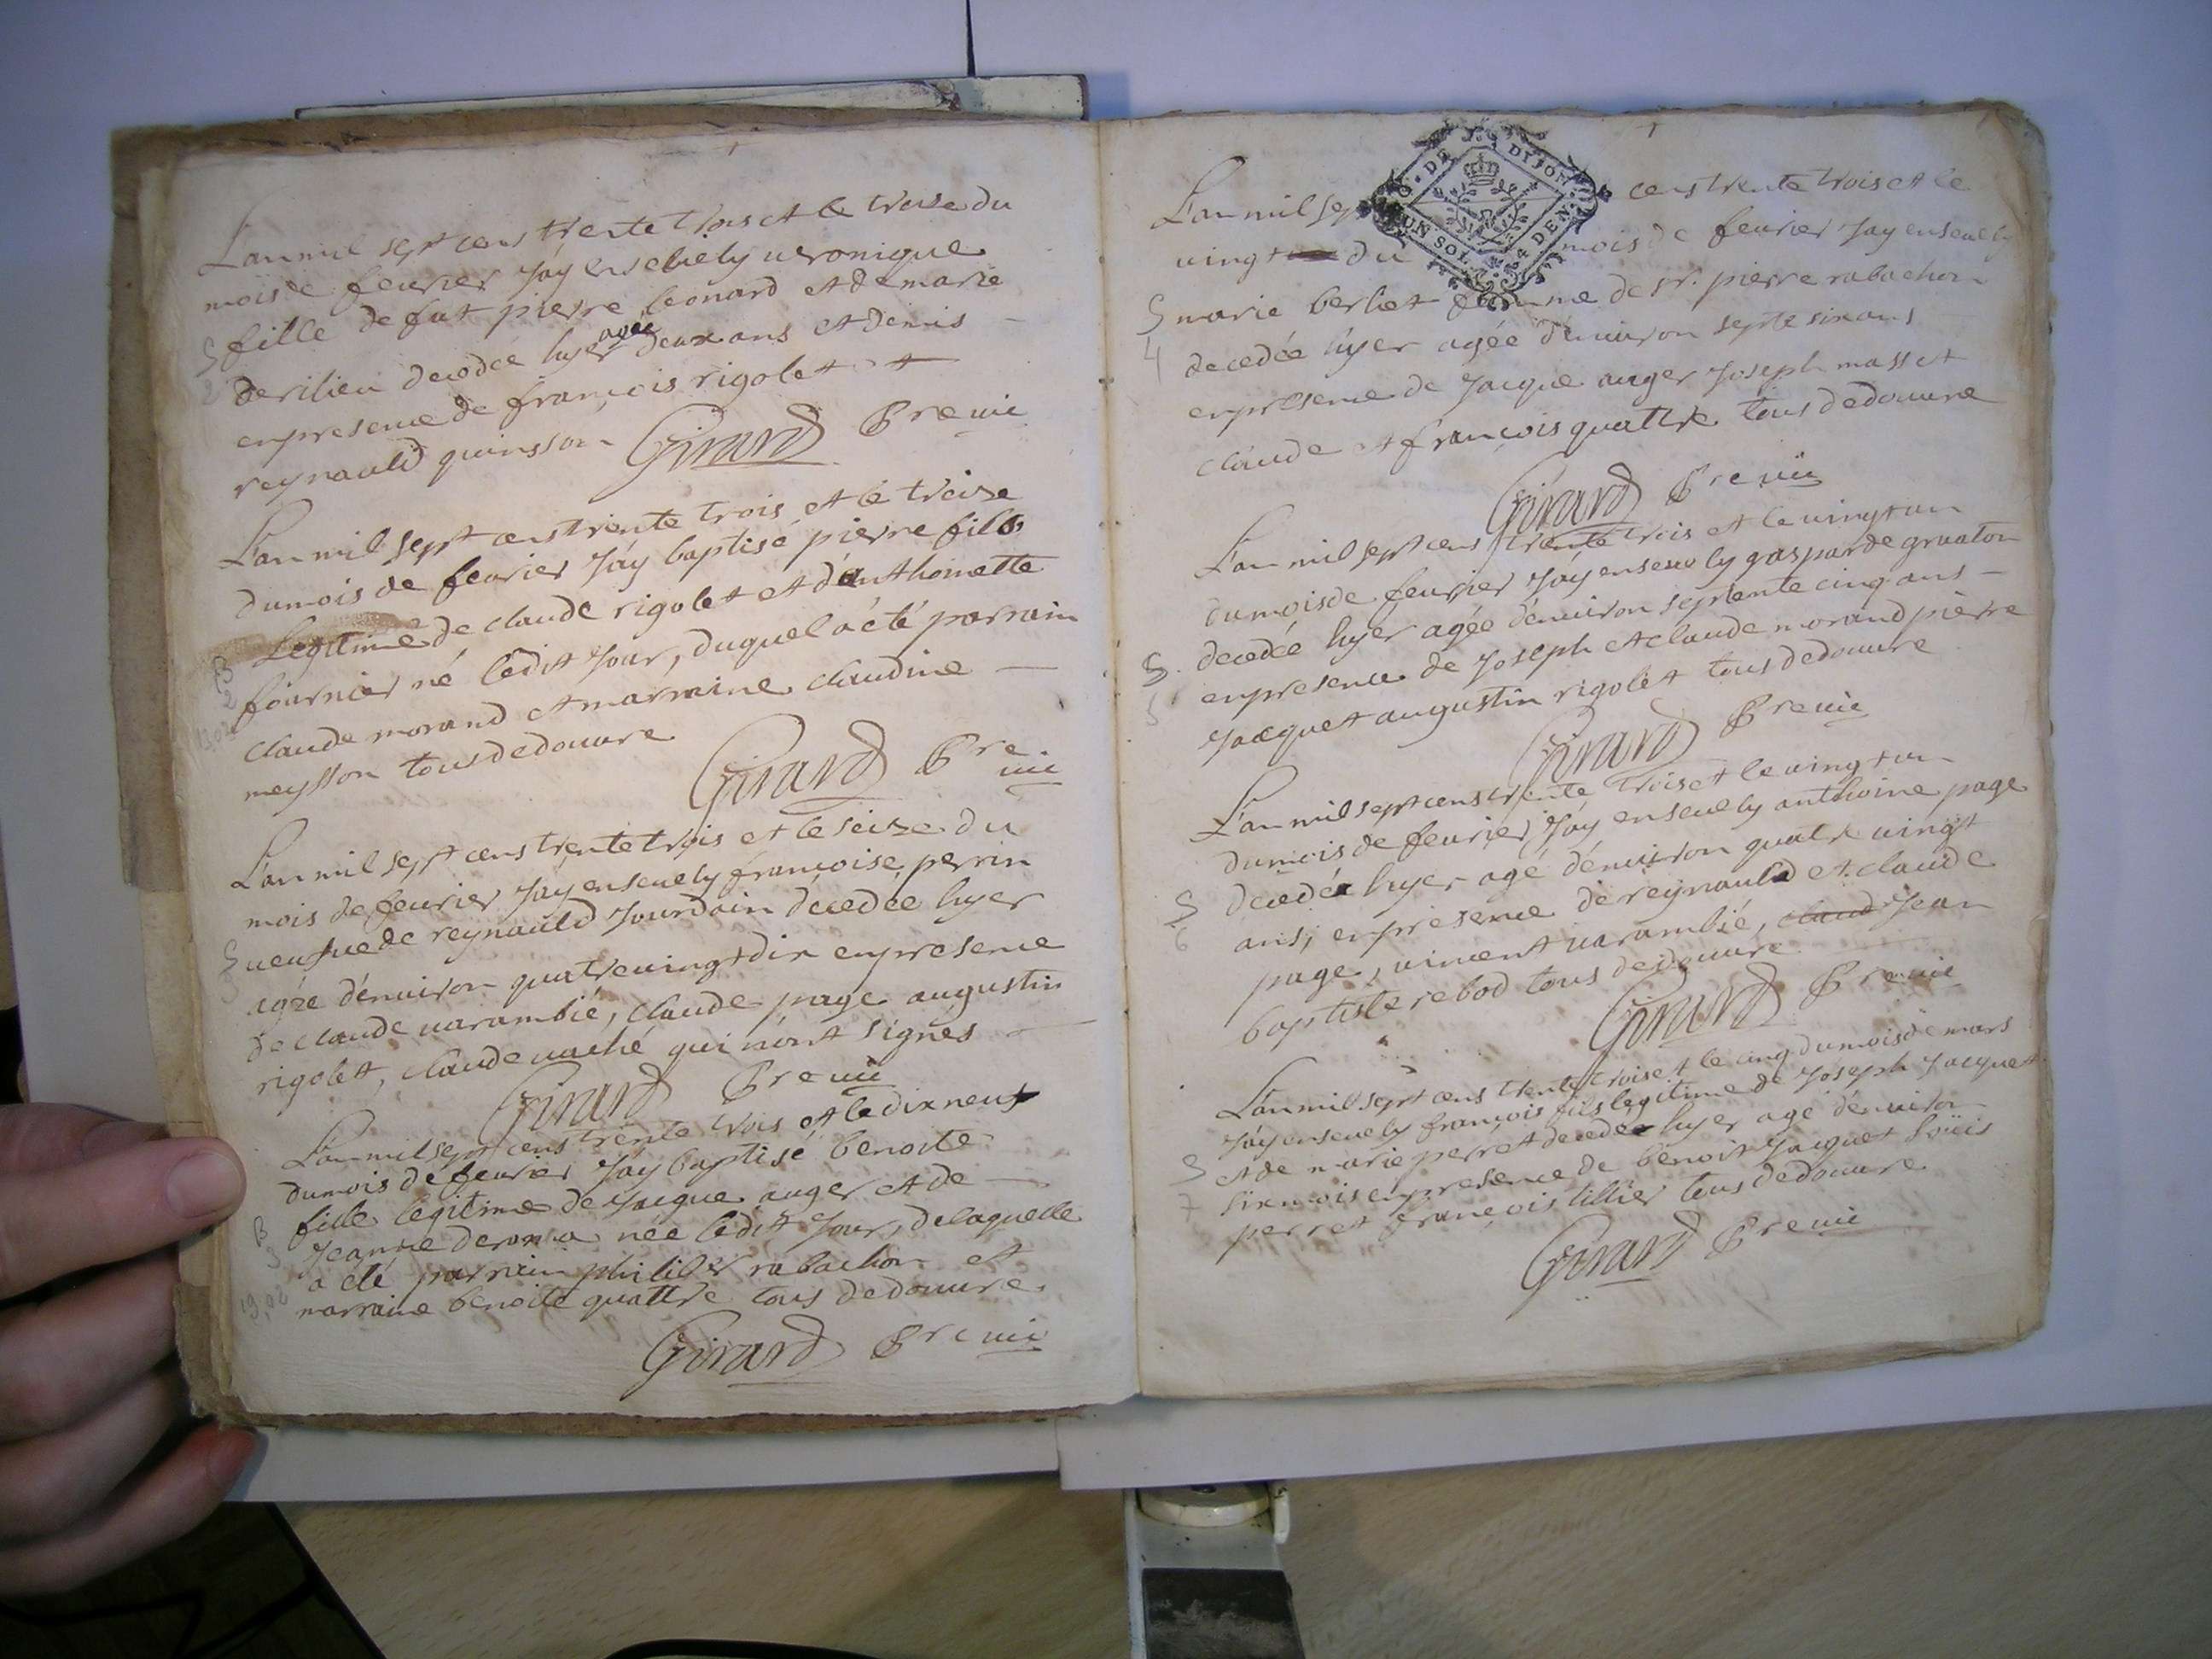 L'an mil sept cens trente trois et le treise du
mois de feurier Jáy enseuely ueronique
fille de fut pierre leonard et de marie
derilieu decedée hyer agée deux ans et demis
en presence de françois rigolet et
reynauld quinsson Girard Pre uic
L'an mil sept cens trente trois et le treize
du mois de feurier Jáy baptisé pierre fils
Legitime de claude rigolet et d'anthoinette
fournier né ledit Jour, duquel a été parrain
claude morand et marraine claudine
meysson tous dedouure
Girard Pre uic
L'an mil sept cens trente trois et le seize du
mois de feurier Jáy enseuely françoise perrin
ueufue de reynauld Jourdain décedée hyer
agée dénuiron quatre uingt dix en presence
de claude uarambié, claude page augustin
rigolet, claude uaché qui n'ont signés
Girard Pre uic
L'an mil sept cens trente trois et le dix neuf
du mois de feurier Jáy baptisé benoite
fille legitime de Jacque auger et de
Jeanne née ledit Jour, de laquelle
a été parrain philibert rabachon et
marraine benoite quattre tous dedouure
Girard Pre uic
G. DE DIJON
UN SOL 4 DEN.
L'an mil sept cens trente trois et le
uingt du mois de feurier Jay enseuely
marie berliet femme de sr. pierre rabachon
decedée hyer agée dénuiron septe six ans
en presence de Jacque auger Joseph masset
claude et françois quattre tous dedouure
Girard Pre uic
L'an mil sept cens trente trois et le uingt un
du mois de feurier Jáy enseuely gasparde gruaton
decedée hyer agée dénuiron septente cinq ans
en presence de Joseph et claude morand pierre
Jacquet augustin rigolet tous dedouure
Girard Pre uic
L'an mil sept cens trente trois et le uingt un
du mois de feurier Jáy enseuely anthoine page
decedé hyer agé dénuiron quatre uingt
ans, en presence de reynauld et claude
page, uincent uarambié, claud Jean
baptiste rebod tous dedouure
Girard Pre uic
L'an mil sept cens trente trois et le cinq du mois de mars
Jáy enseuely françois fils legitime de Joseph Jacquet
et de marie perret decedé hyer agé dénuiron
six mois en presence de benoit Jacquet loüis
perret françois tillier tous dedouure
Girard Pre uic